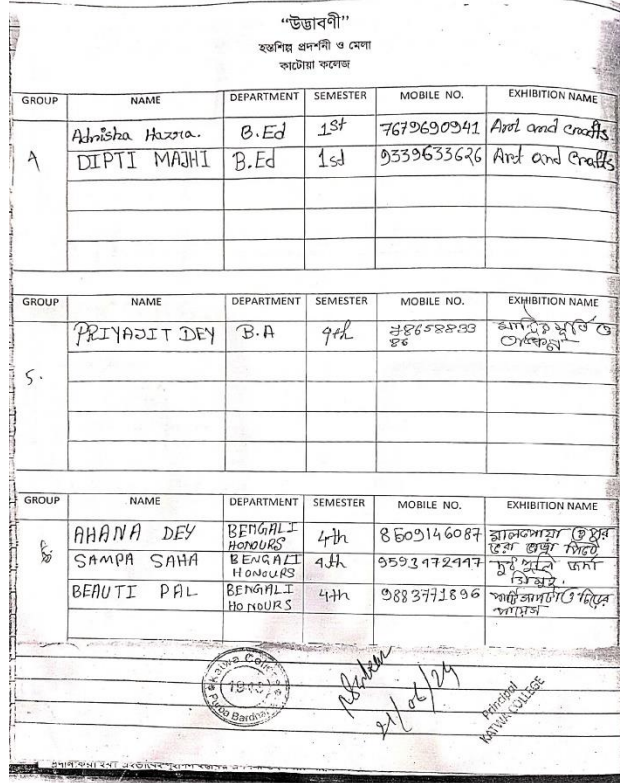 “উদ্ভাবণী”
হস্তশিল্প প্রদর্শনী ও মেলা
কাটোয়া কলেজ
GROUP NAME DEPARTMENT SEMESTER MOBILE NO. EXHIBITION NAME
Adrisha Hazra. B.Ed 1st 7679690941 Art and crafts
A DIPTI MAJHI B.Ed 1sd 9339633626 Art and Crafts
GROUP NAME DEPARTMENT SEMESTER MOBILE NO. EXHIBITION NAME
PRIYAJIT DEY B.A 4th 8658833 মাটির মূর্তি ও
86
5.
GROUP NAME DEPARTMENT SEMESTER MOBILE NO. EXHIBITION NAME
AHANA DEY BENGALI HONOURS 4th 8609146087 মালপোয়া
SAMPA SAHA BENGALI HONOURS 4th 9593472447
BEAUTI PAL BENGALI HONOURS 4th 9883771896
Katwa College
Purba Bardha
21/06/24
Principal
KATWA COLLEGE